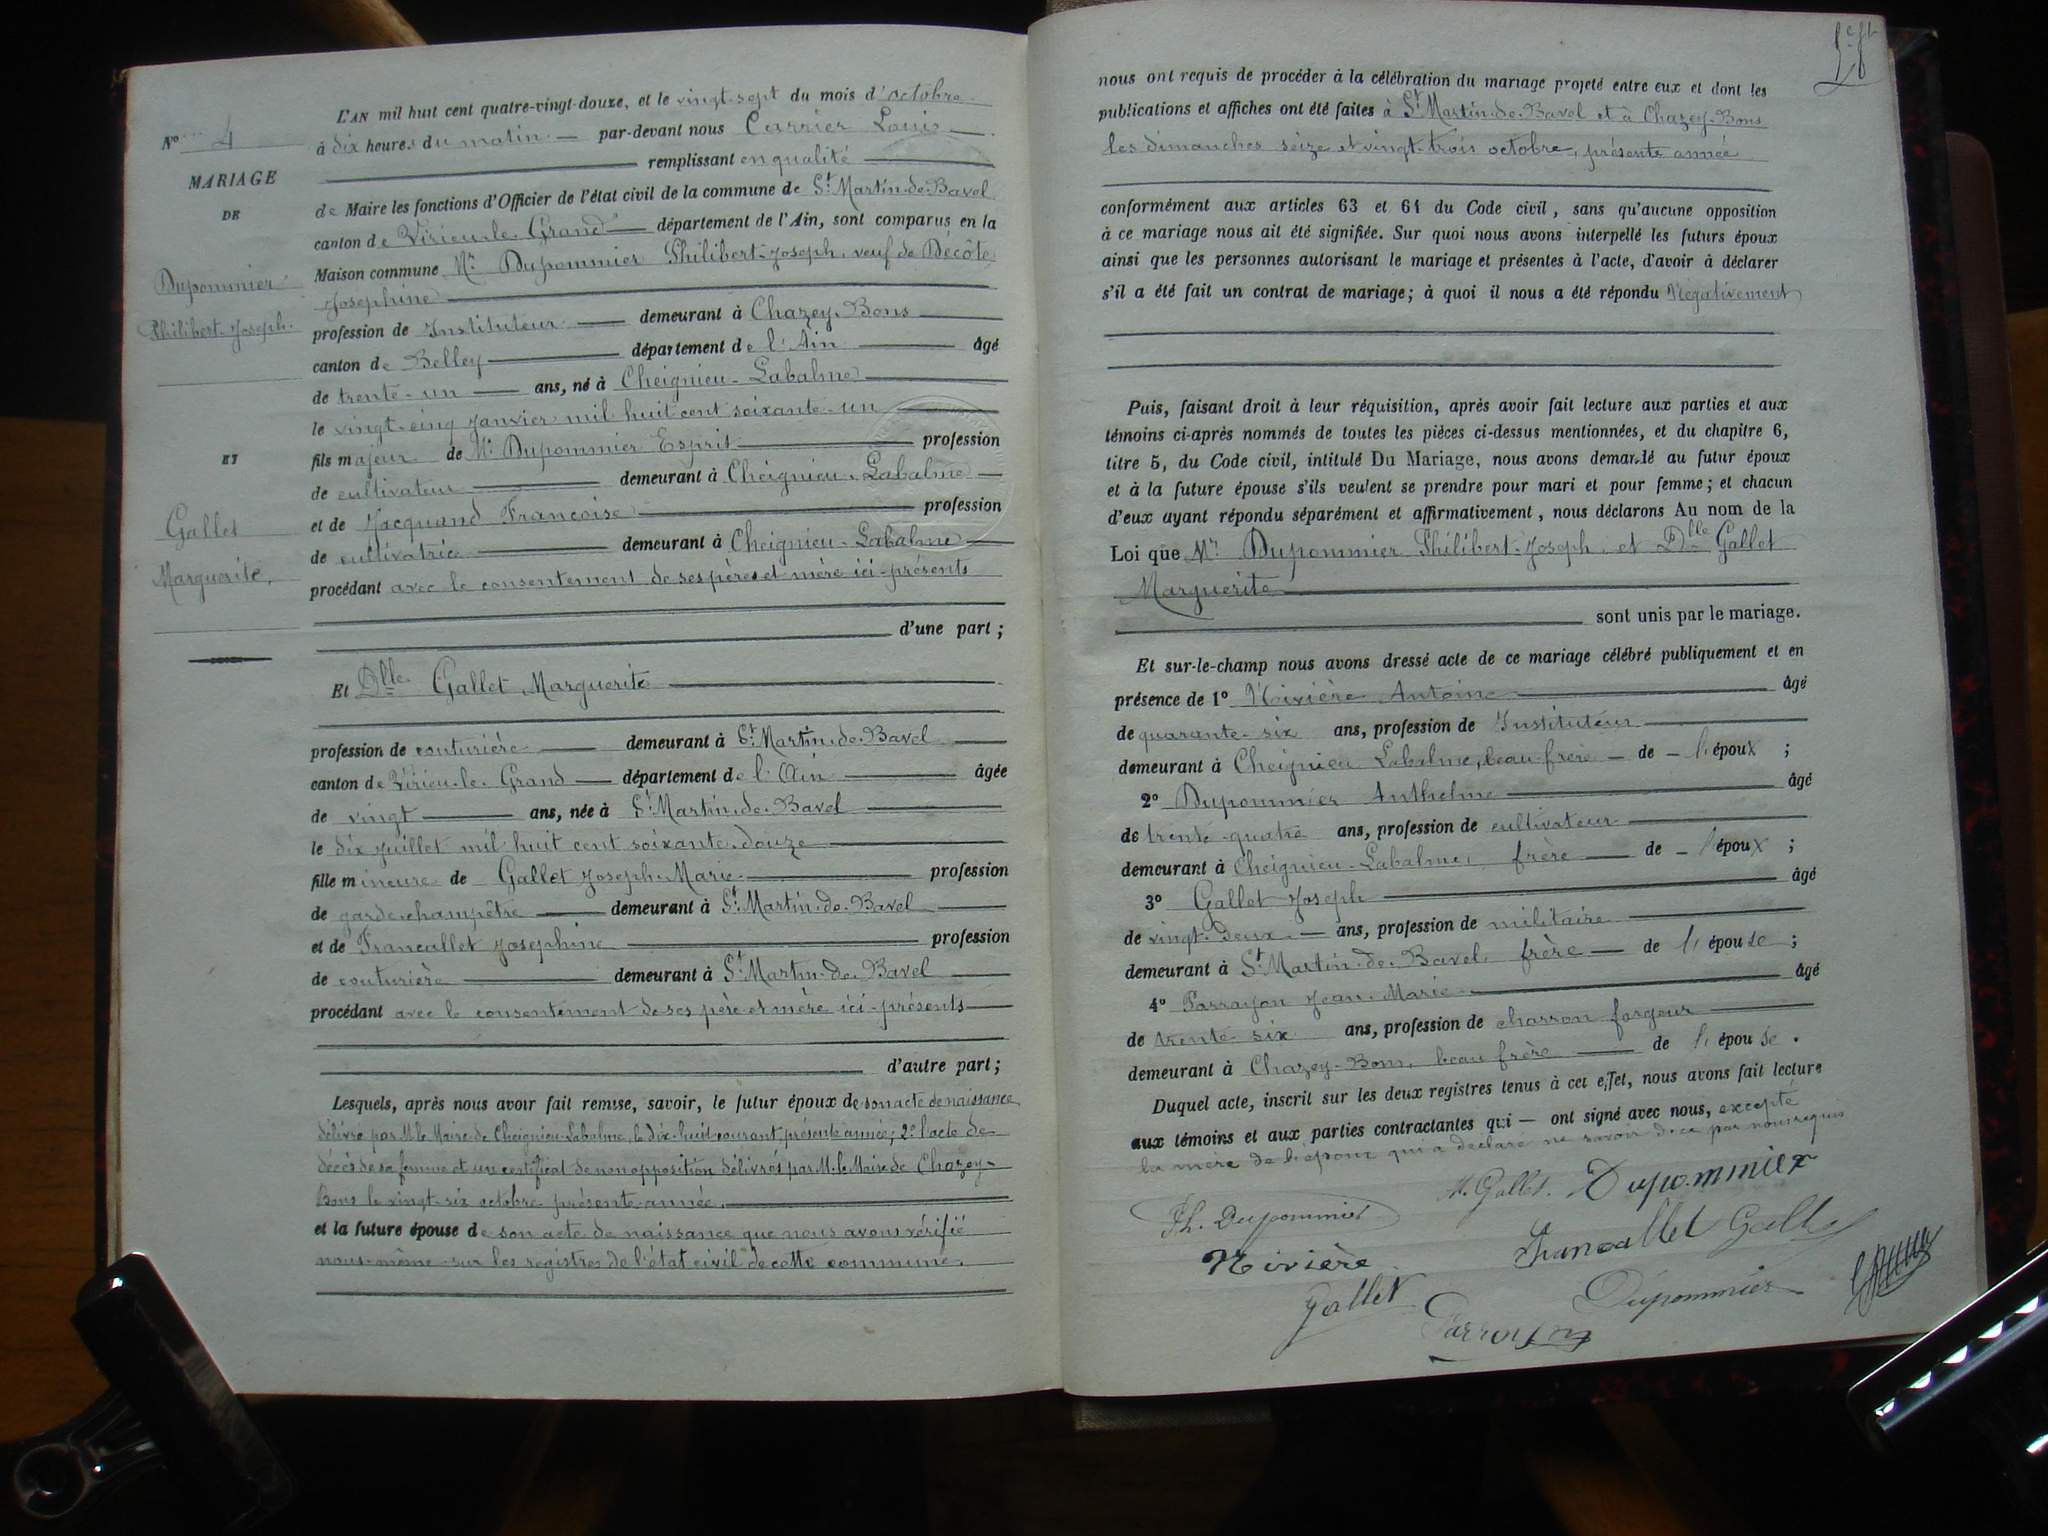 L'AN mil huit cent quatre-vingt-douze, et le vingt-sept du mois d'octobre
à dix heures du matin par-devant nous Carrier Louis
remplissant en qualité
de Maire les fonctions d'Officier de l'état civil de la commune de St Martin-de-Bavel
canton de Virieu-le-Grand département de l'Ain, sont comparus en la
Maison commune Mr Dupommier Philibert-Joseph, veuf de Décôte
Josephine
profession de Instituteur demeurant à Chazey-Bons
canton de Belley département de l'Ain âgé
de trente-un ans, né à Cheignieu-Labalme
le vingt-cinq Janvier mil huit cent soixante-un
fils majeur de Mr Dupommier Esprit profession
de cultivateur demeurant à Cheignieu-Labalme
et de Jacquand Françoise profession
de cultivatrice demeurant à Cheignieu-Labalme
procédant avec le consentement de ses pères et mère ici-présents
d'une part ;
Et Dlle Gallet Marguerite
profession de couturière demeurant à St Martin-de-Bavel
canton de Virieu-le-Grand département de l'Ain âgée
de vingt ans, née à St Martin-de-Bavel
le dix Juillet mil huit cent soixante-douze
fille mineure de Gallet Joseph-Marie profession
de garde-champêtre demeurant à St Martin-de-Bavel
et de Francallet Josephine profession
de couturière demeurant à St Martin-de-Bavel
procédant avec le consentement de ses père et mère ici-présents
d'autre part ;
Lesquels, après nous avoir fait remise, savoir, le futur époux de son acte de naissance
délivré par M. le Maire de Cheignieu-Labalme, le dix-huit courant, présente année; 2° l'acte de
décès de sa femme et un certificat de non opposition délivrés par M. le Maire de Chazey-
Bons le vingt-six octobre présente année.
et la future épouse de son acte de naissance que nous avons vérifié
nous-même sur les registres de l'état civil de cette commune.
N° 4
MARIAGE
DE
Dupommier
Philibert-Joseph.
ET
Gallet
Marguerite,
nous ont requis de procéder à la célébration du mariage projeté entre eux et dont les
publications et affiches ont été faites à St Martin-de-Bavel et à Chazey-Bons
les dimanches seize et vingt-trois octobre, présente année
conformément aux articles 63 et 64 du Code civil, sans qu'aucune opposition
à ce mariage nous ait été signifiée. Sur quoi nous avons interpellé les futurs époux
ainsi que les personnes autorisant le mariage et présentes à l'acte, d'avoir à déclarer
s'il a été fait un contrat de mariage ; à quoi il nous a été répondu Négativement
Puis, faisant droit à leur réquisition, après avoir fait lecture aux parties et aux
témoins ci-après nommés de toutes les pièces ci-dessus mentionnées, et du chapitre 6,
titre 5, du Code civil, intitulé Du Mariage, nous avons demandé au futur époux
et à la future épouse s'ils veulent se prendre pour mari et pour femme ; et chacun
d'eux ayant répondu séparément et affirmativement, nous déclarons Au nom de la
Loi que Mr Dupommier Philibert-Joseph et Dlle Gallet
Marguerite
sont unis par le mariage.
Et sur-le-champ nous avons dressé acte de ce mariage célébré publiquement et en
présence de 1° Nivière Antoine âgé
de quarante-six ans, profession de Instituteur
demeurant à Cheignieu Labalme, beau-frère de l'époux ;
2° Dupommier Anthelme âgé
de trente-quatre ans, profession de cultivateur
demeurant à Cheignieu-Labalme, frère de l'époux ;
3° Gallet Joseph âgé
de vingt-deux ans, profession de militaire
demeurant à St Martin-de-Bavel, frère de l'épouse ;
4° Parrayon Jean-Marie âgé
de trente-six ans, profession de charron forgeur
demeurant à Chazey-Bons, beau frère de l'épouse.
Duquel acte, inscrit sur les deux registres tenus à cet effet, nous avons fait lecture
aux témoins et aux parties contractantes qui — ont signé avec nous, excepté
la mère de l'époux qui a déclaré ne savoir de ce par nous requis
Ph. Dupommier M. Gallet. Dupommier
Nivière Francallet Gallet
Gallet Parrayon Dupommier